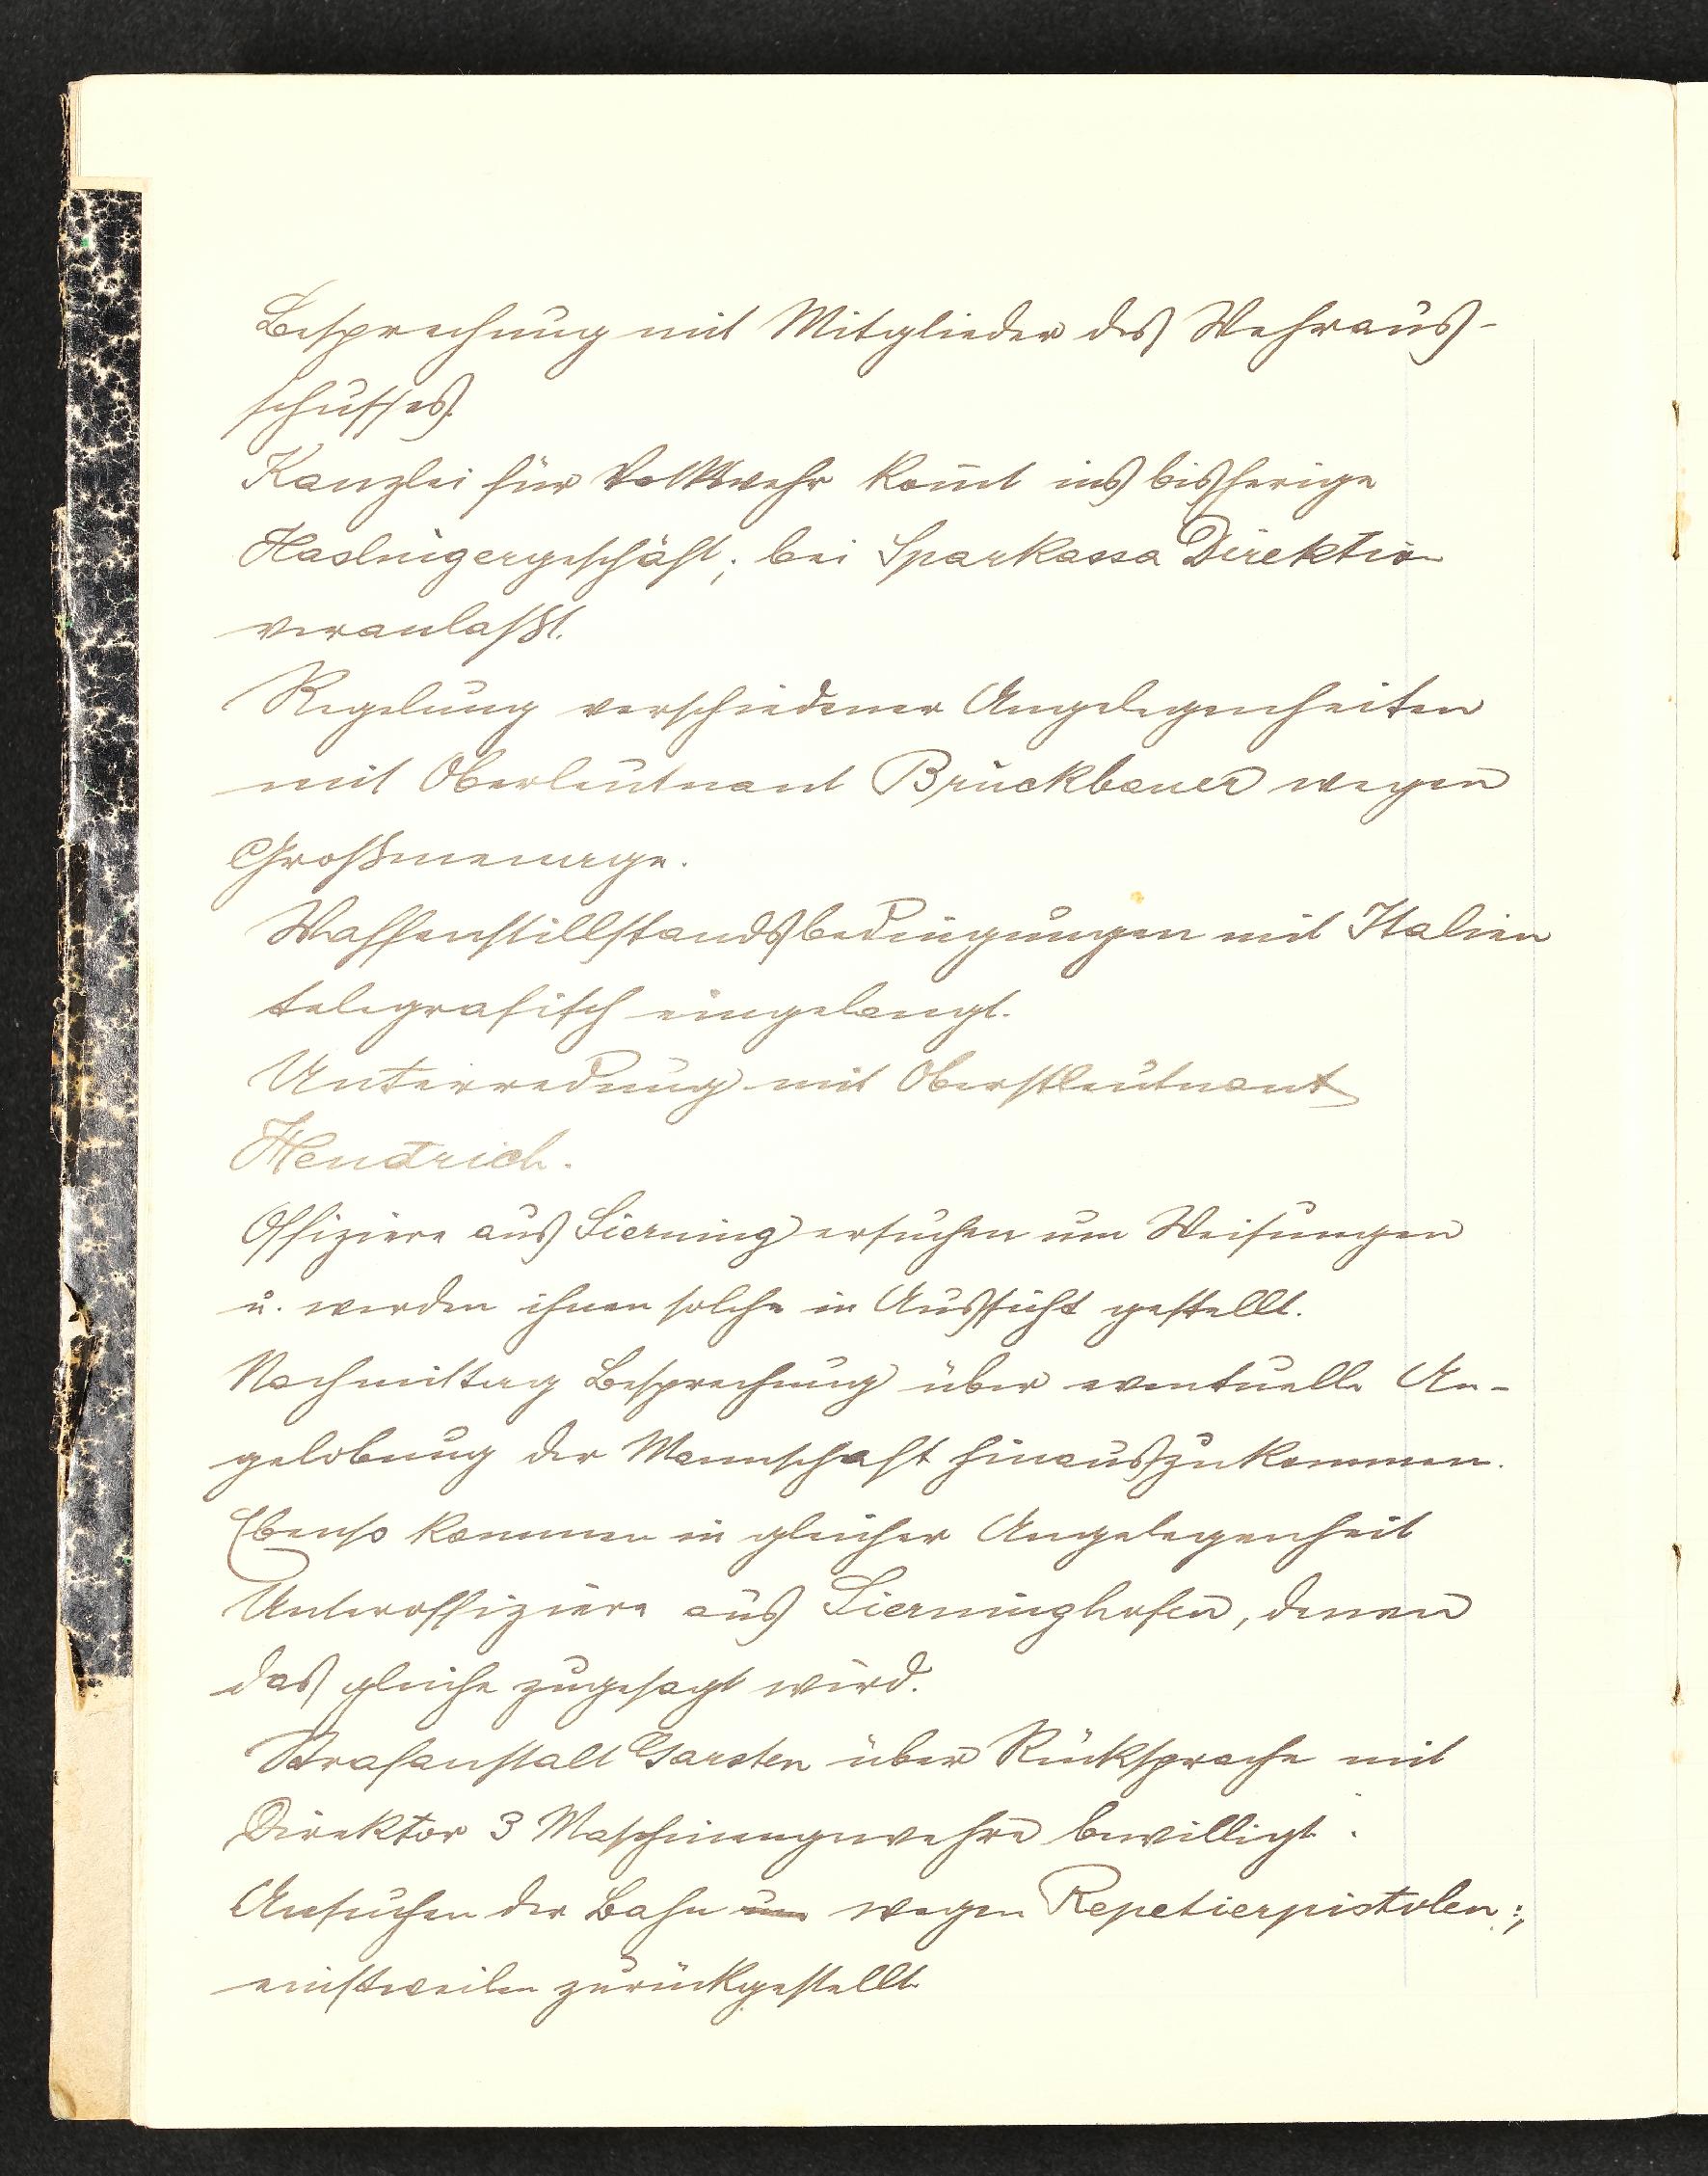 Besprechung mit Mitglieder des Wehraus-
schusses.
Kanzlei für Volkswehr kom̄t ins bisherige
Haslingergeschäft; bei Sparkassa Direktion
veranlaßt.
Regelung verschiedener Angelegenheiten
mit Oberleutnant Bruckbauer wegen
Großmenage.
Waffenstillstandsbedingungen mit Italien
telegrafisch eingelangt.
Unterredung mit Oberstleutnant
Hendrich.
Offiziere aus Sierning ersuchen um Weisungen
u. werden ihnen solche in Aussicht gestellt.
Nachmittag Besprechung über eventuelle An-
gelobung der Mannschaft hinauszukommen.
Ebenso kommen in gleicher Angelegenheit
Unteroffiziere aus Sierninghofen, denen
das gleiche zugesagt wird.
Strafanstalt Garsten über Rücksprache mit
Direktor 3 Maschinengewehre bewilligt.
Ansuchen der Bahn um wegen Repetierpistolen;
einstweilen zurückgestellt